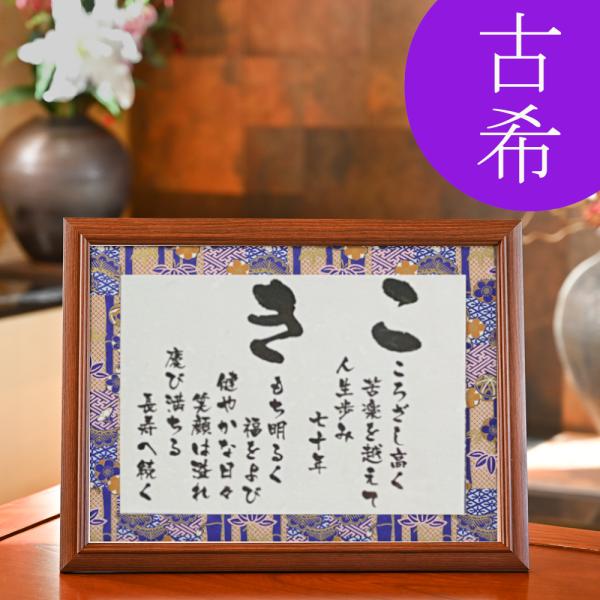 古希
こ
ころざし高く
苦楽を越えて
人生歩み
七十年
き
きもち明るく
福をよび
健やかな日々
笑顔は溢れ
慶び満ちる
長寿へ続く